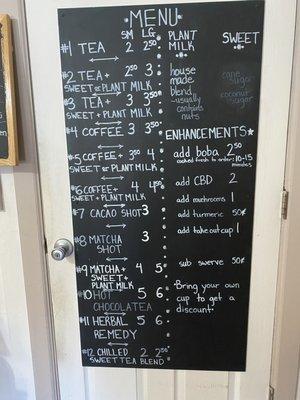 MENU
SM LG
#1 TEA 2 2.50
#2 TEA + 2.50 3
SWEET OR PLANT MILK
#3 TEA + 3 3.50
SWEET + PLANT MILK
#4 COFFEE 3 3.50
#5 COFFEE + 3.50 4
SWEET OR PLANT MILK
#6 COFFEE + 4 4.50
SWEET + PLANT MILK
#7 CACAO SHOT 3
#8 MATCHA 3
SHOT
#9 MATCHA + 4 5
SWEET +
PLANT MILK
#10 HOT 5 6
CHOCOLATEA
#11 HERBAL 5 6
REMEDY
#12 CHILLED 2 2.50
SWEET TEA BLEND
PLANT
MILK
house
made
blend
usually
contains
nuts
SWEET
cane
sugar
coconut
sugar
ENHANCEMENTS
add boba 2.50
cooked fresh to order: 10-15
minutes
add CBD 2
add mushrooms 1
add turmeric 50¢
add take out cup 1
sub swerve 50¢
Bring your own
cup to get a
discount.